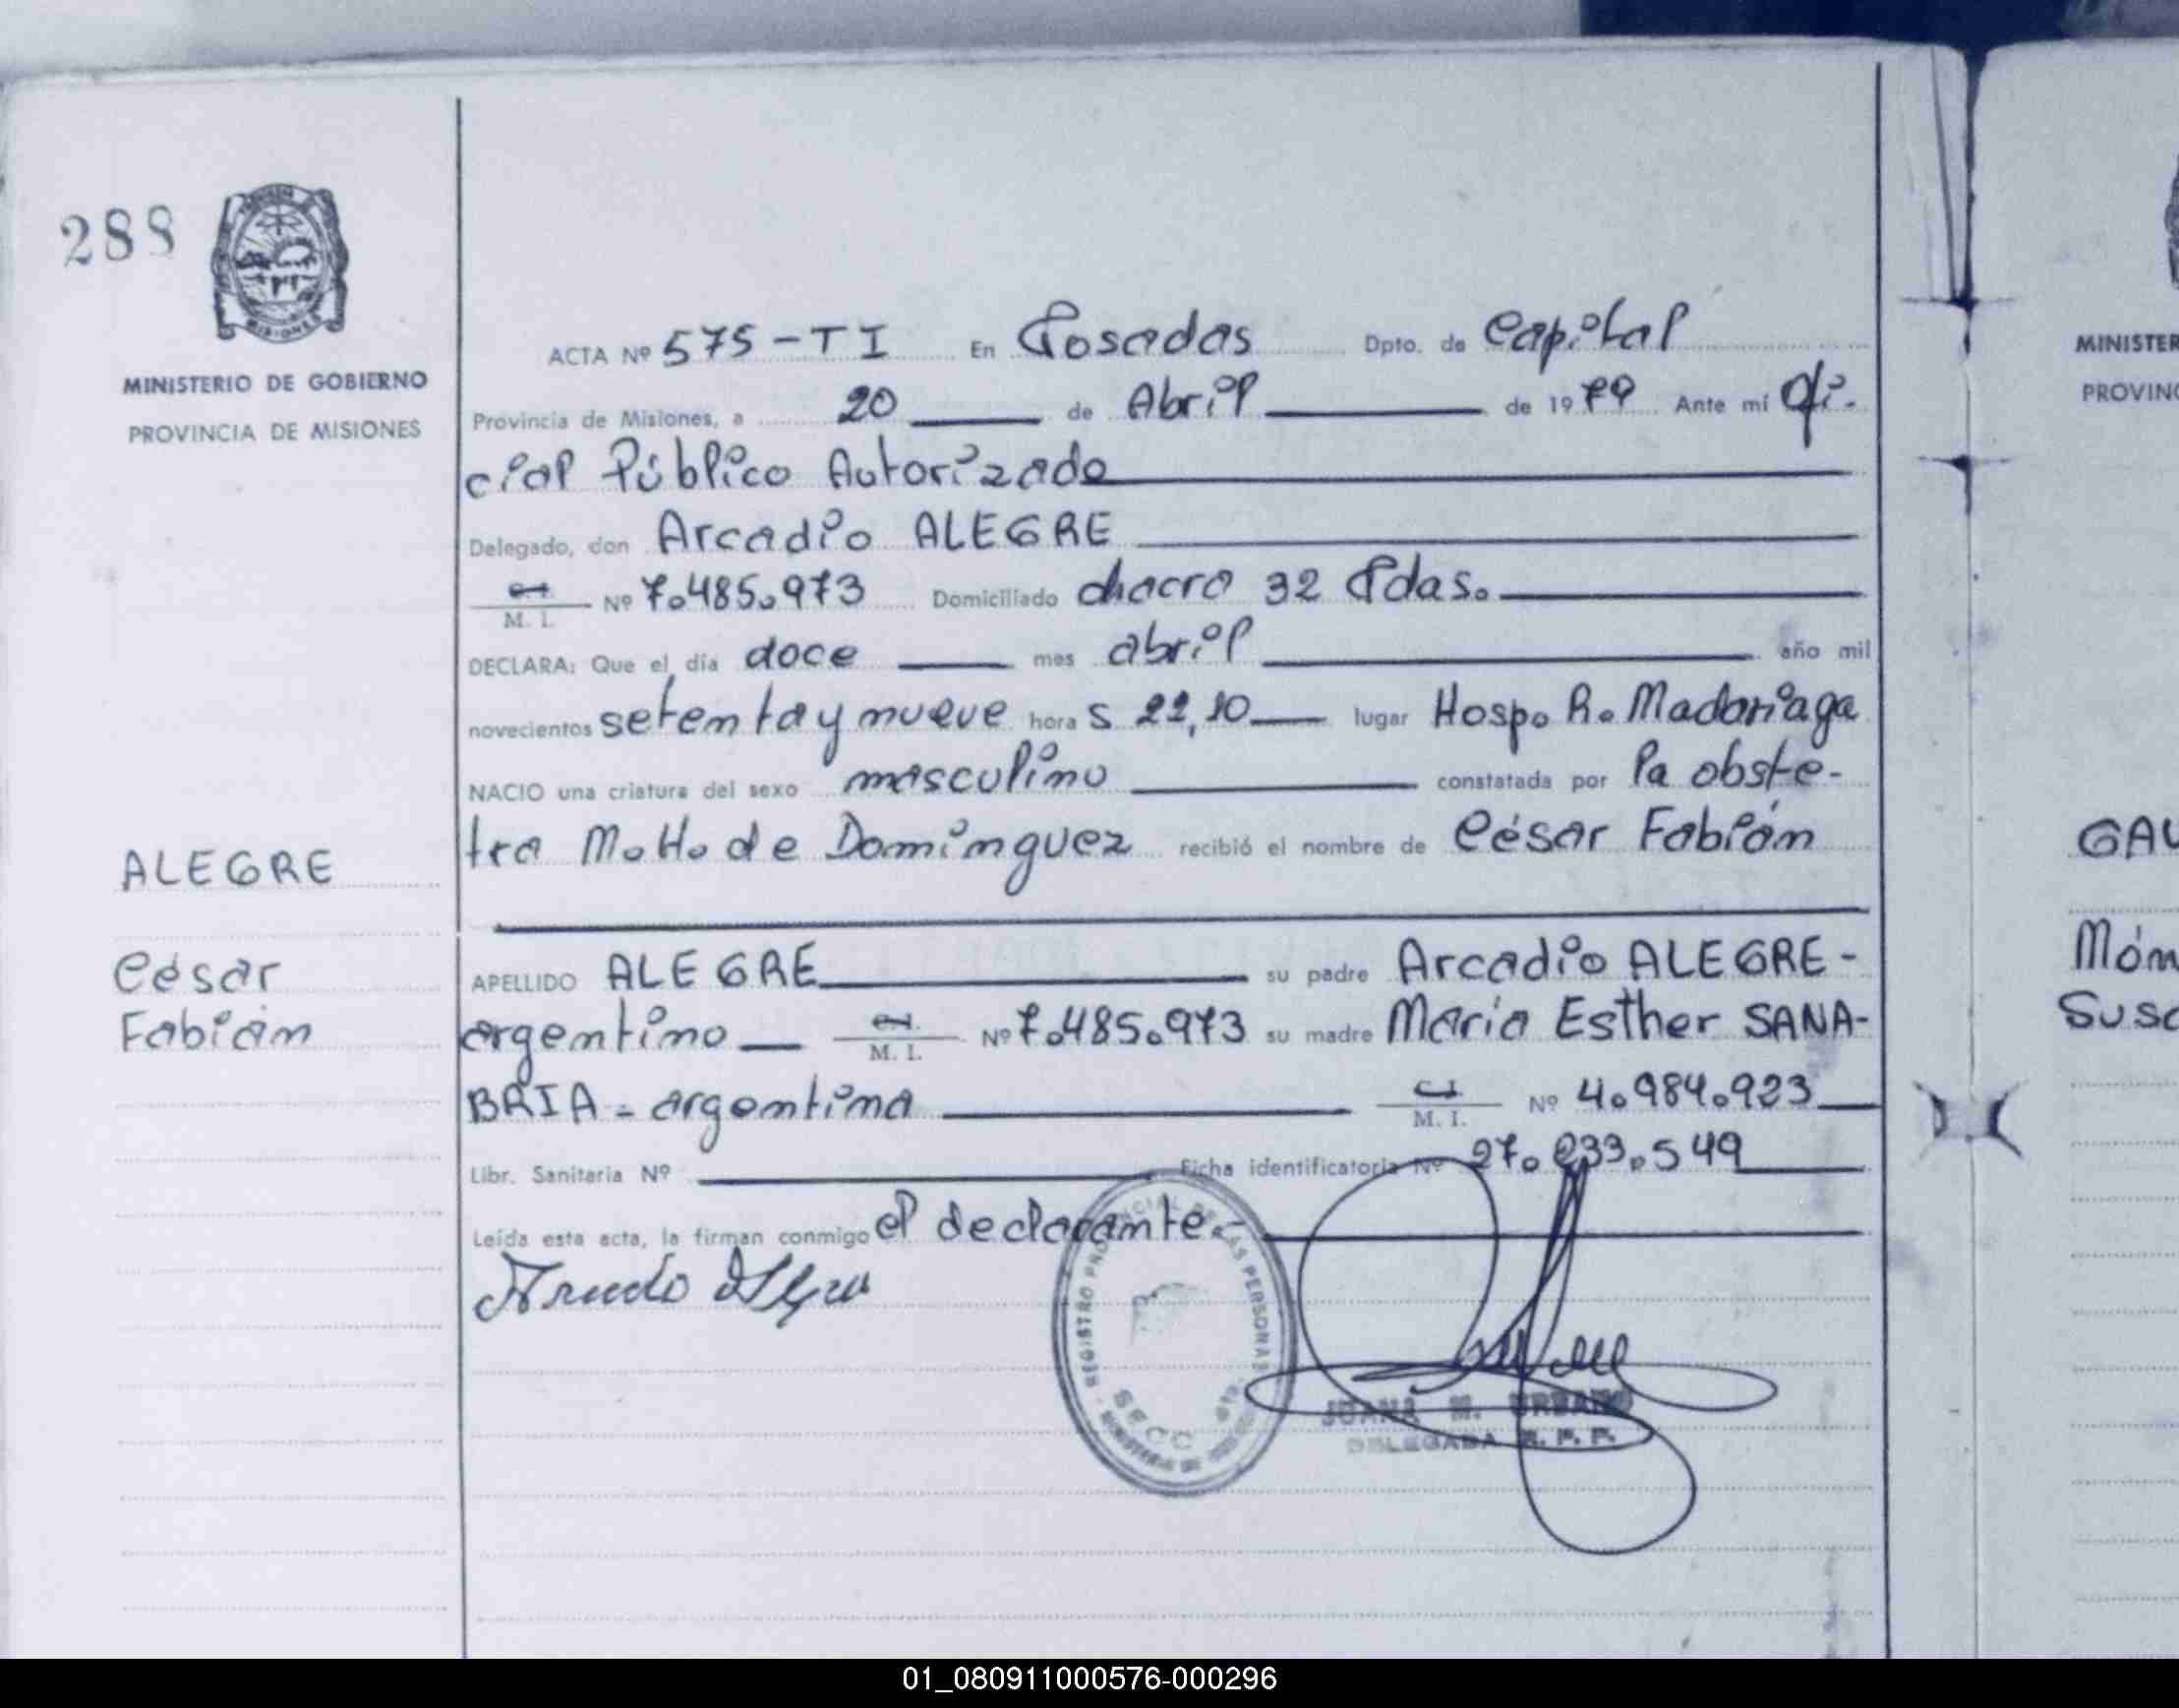 288
MISIONES
MINISTERIO DE GOBIERNO
PROVINCIA DE MISIONES
ACTA Nº 575-TI En Posadas Dpto. de Capital
Provincia de Misiones, a 20 de Abril de 1979 Ante mí Ofi-
cial Público Autorizado
Delegado, don Arcadio ALEGRE
M. I. Nº 7.485.973 Domiciliado chacra 32 Pdas.
DECLARA: Que el día doce mes abril año mil
novecientos setenta y nueve hora s 22,10 lugar Hosp. R. Madariaga
NACIO una criatura del sexo masculino constatada por la obste-
tra M. H. de Domínguez recibió el nombre de César Fabián
ALEGRE
César
Fabián
APELLIDO ALEGRE su padre Arcadio ALEGRE -
argentino M. I. Nº 7.485.973 su madre María Esther SANA-
BRIA - argentina M. I. Nº 4.984.923
Libr. Sanitaria Nº Ficha identificatoria Nº 27.233.549
Leída esta acta, la firman conmigo el declarante.
REGISTRO PROVINCIAL DE LAS PERSONAS
SECC
JUANA M. URBANO
DELEGADA R. P. P.
MINISTER
PROVINC
GAU
Món
Susa
01_080911000576-000296